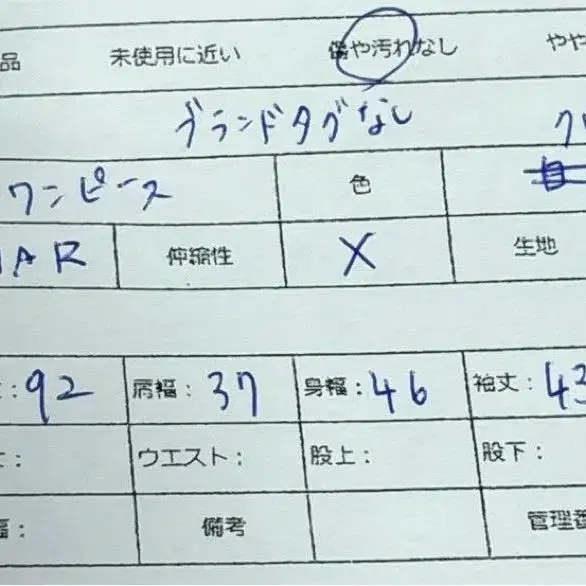 品 未使用に近い 傷や汚れなし やや
ブランドタグなし
ワンピース 色
AR 伸縮性 X 生地
: 92 肩幅: 37 身幅: 46 袖丈: 43
: ウエスト: 股上: 股下:
幅: 備考 管理番